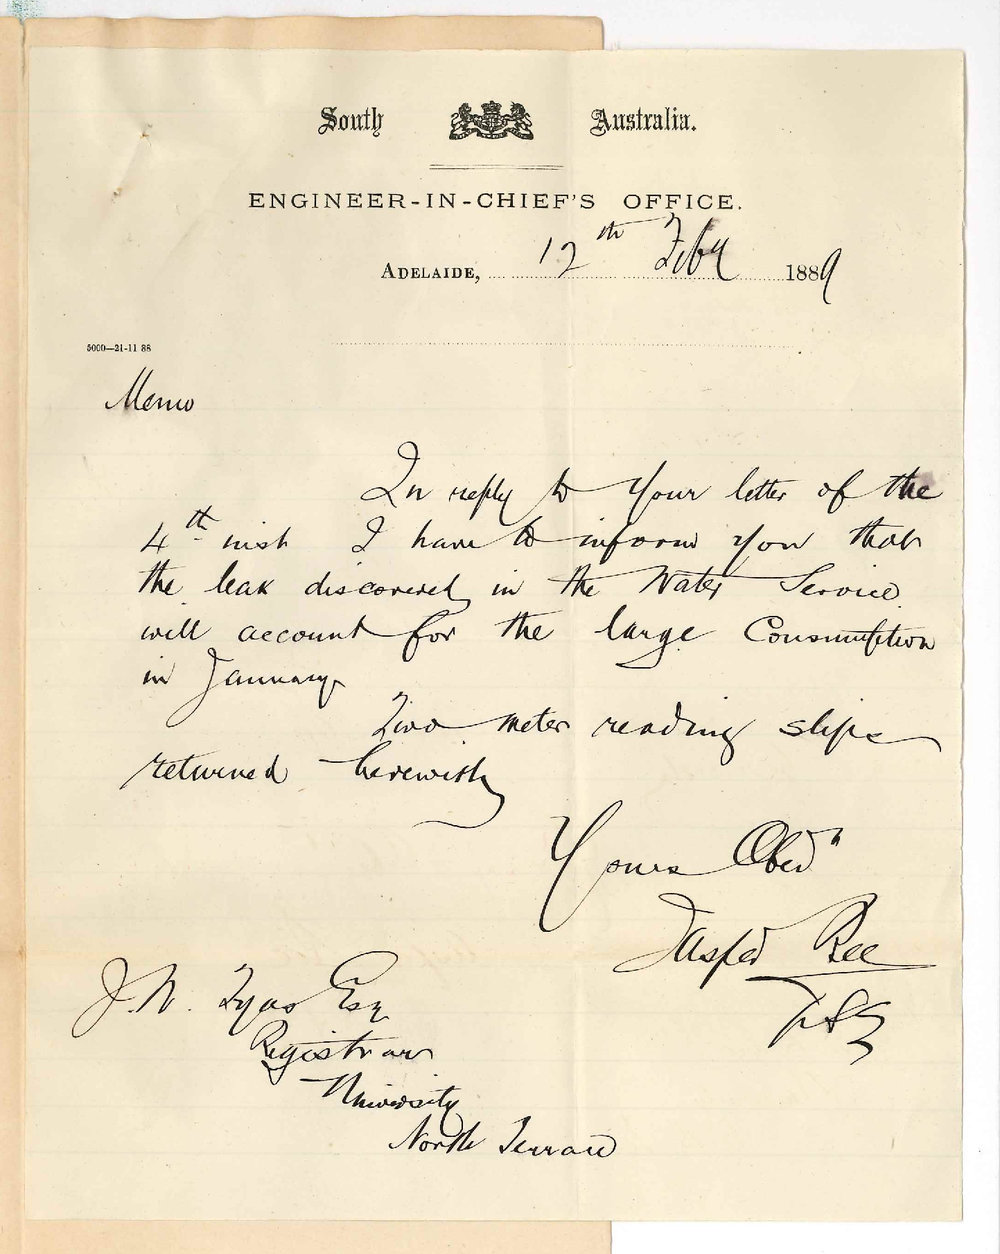 South Australia.
ENGINEER-IN-CHIEF'S OFFICE.
ADELAIDE, 12th Feby 1889
5000—21-11 88
Memo
In reply to Your letter of the
4th inst I have to inform You that
the leak discovered in the Water Service
will account for the large Consumption
in January.
Two meter reading slips
returned herewith
Yours Obed
Jasper Ree
J. W. Tyas Esq
Registrar
University
North Terrace